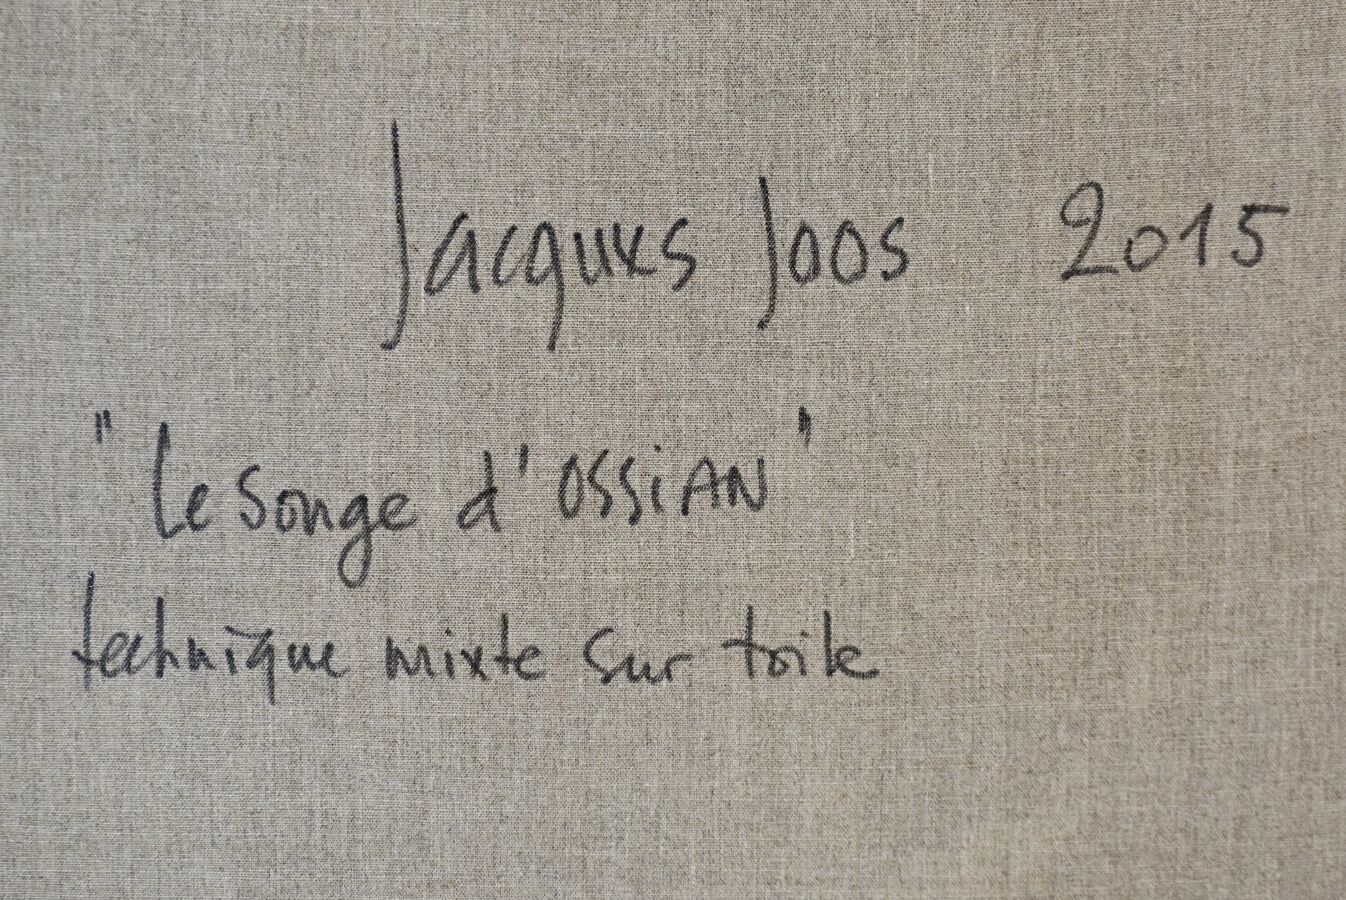 Jacques Joos 2015
"Le Songe d'OSSiAN"
technique mixte sur toile